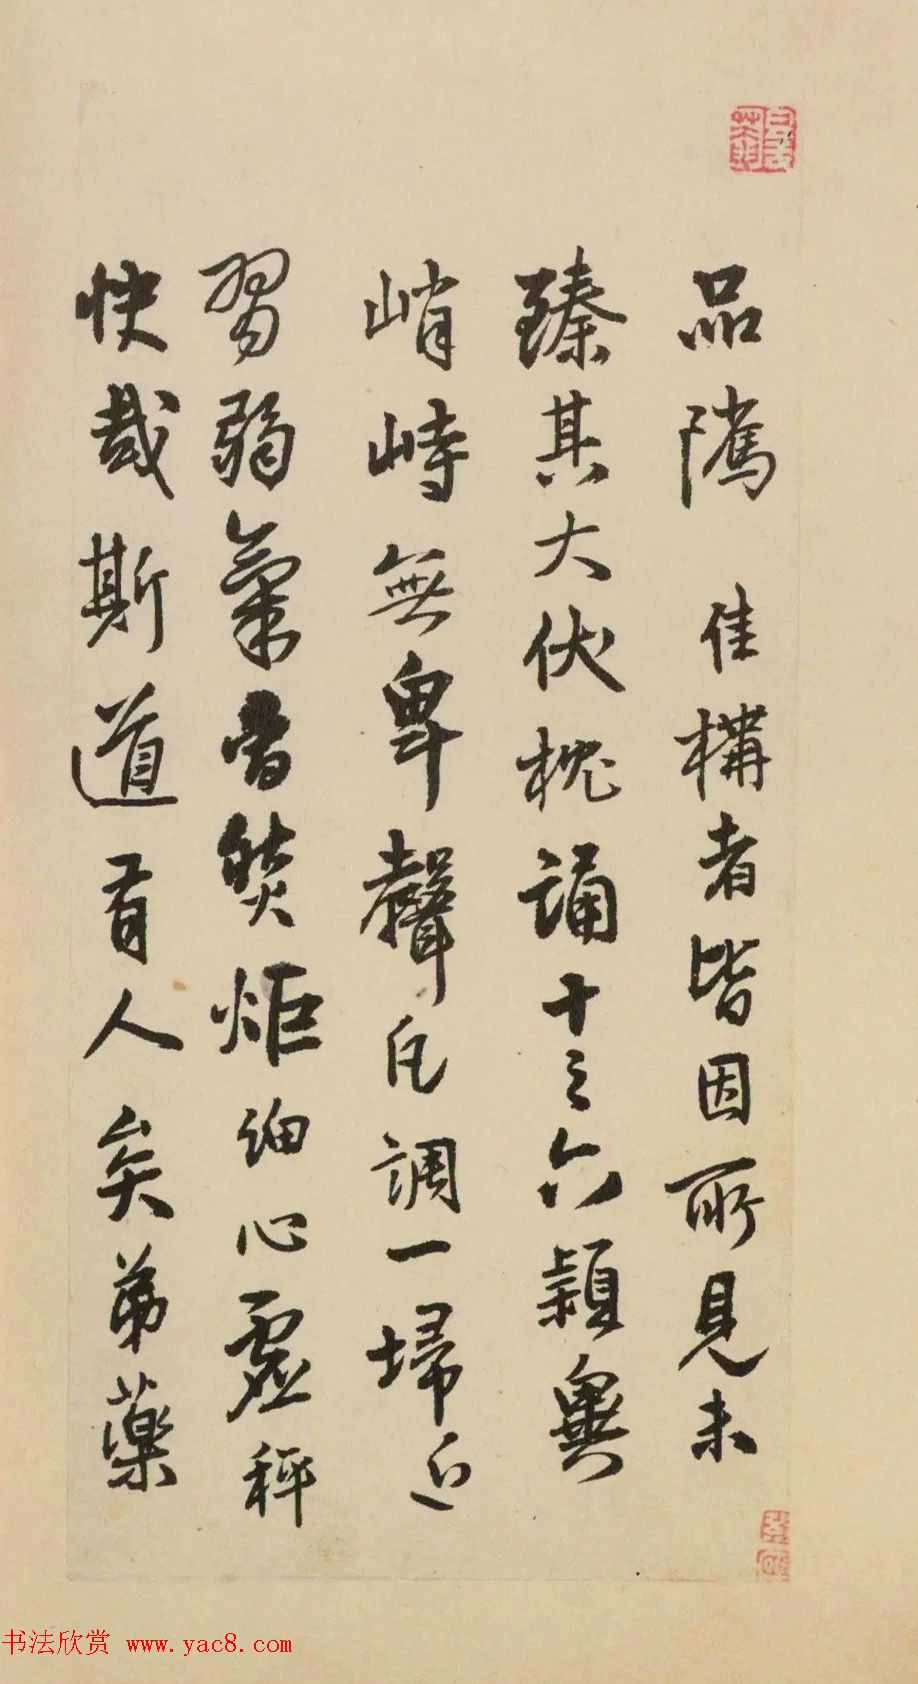 品隲佳構者皆因所見未
臻其大伏枕誦十之六穎異
峭峙無卑聲凡調一埽近
習弱氣昏焚炬細心虛秤
快哉斯道有人矣弟藥
书法欣赏 www.yac8.com